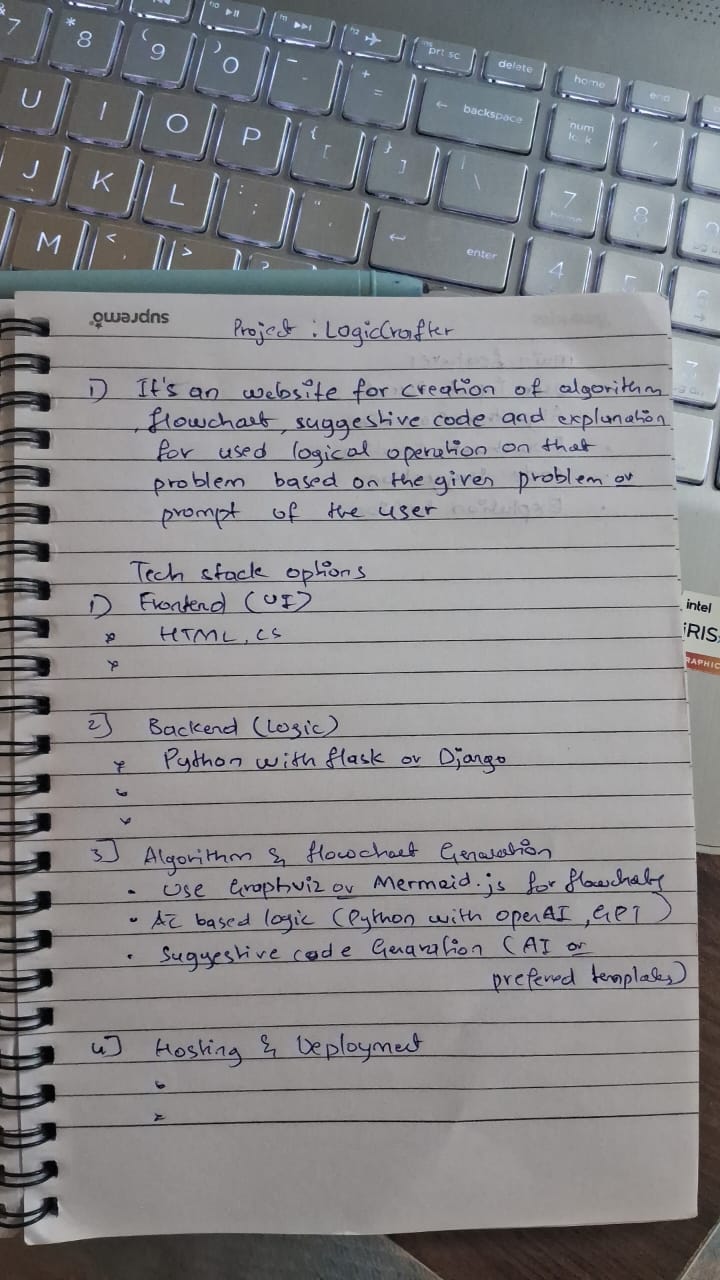 no ▶||
▶▶|
prt sc
delete
home
end
7 * 8 ( 9 ) 0 - + =
← backspace
num
lock
/
U I O P { [ } ] | \
7
home
8
J K L : ; " '
← enter
4
5
M < , > . ?
supremo
Project : LogicCrafter
1) It's an website for creation of algorithm
, flowchart, suggestive code and explanation
for used logical operation on that
problem based on the given problem or
prompt of the user
Tech stack options
1) Frontend (UI)
* HTML, CS
*
2] Backend (Logic)
* Python with flask or Django
3] Algorithm & flowchart Generation
• Use Graphviz or Mermaid.js for flowcharts
• AI based logic (Python with openAI, GPT)
• Suggestive code Genaration (AI or
prefered templates)
4] Hosting & Deployment
intel
iRIS
GRAPHIC